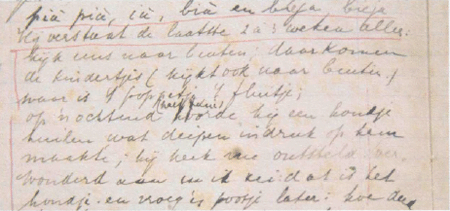 pià pià, ià, bià en breja breja
Hij verstaat de laatste 2 à 3 weken alles:
kijk eens naar buiten: daar komen
de kindertjes (kijkt ook naar buiten.)
waar is 't poppetje, 't fluitje;
op 'n ochtend hoorde hij een hondje
huilen wat diepen indruk op hem
maakte; hij keek me ontsteld ver
wonderd aan en ik zei dat is het
hondje en vroeg 'n poosje later: hoe deed